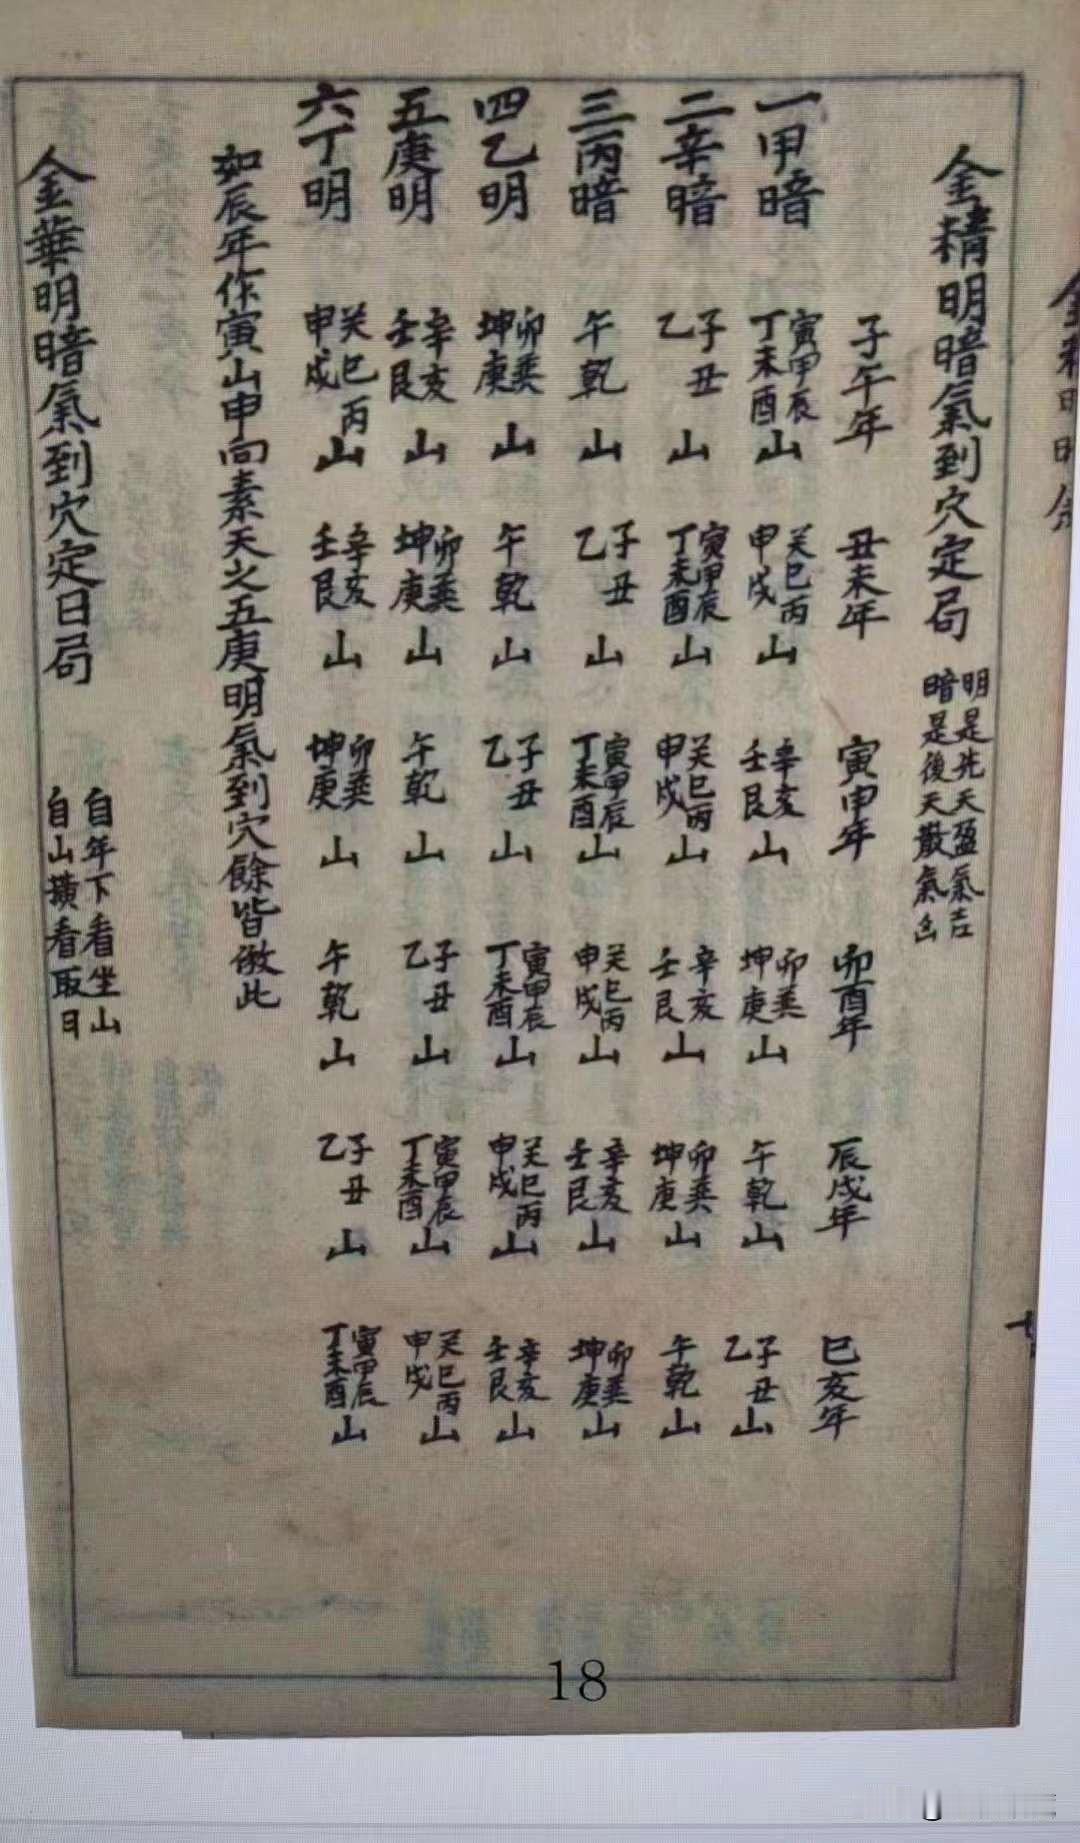 金精明暗氣到穴定局
明是先天盈氣吉
暗是後天散氣凶
子午年 丑未年 寅申年 卯酉年 辰戌年 巳亥年
一甲暗 寅甲辰丁未酉山 癸巳丙申戌山 辛亥壬艮山 卯巽坤庚山 午乾山 子丑乙山
二辛暗 子丑乙山 寅甲辰丁未酉山 癸巳丙申戌山 辛亥壬艮山 卯巽坤庚山 午乾山
三丙暗 午乾山 子丑乙山 寅甲辰丁未酉山 癸巳丙申戌山 辛亥壬艮山 卯巽坤庚山
四乙明 卯巽坤庚山 午乾山 子丑乙山 寅甲辰丁未酉山 癸巳丙申戌山 辛亥壬艮山
五庚明 辛亥壬艮山 卯巽坤庚山 午乾山 子丑乙山 寅甲辰丁未酉山 癸巳丙申戌山
六丁明 癸巳丙申戌山 辛亥壬艮山 卯巽坤庚山 午乾山 子丑乙山 寅甲辰丁未酉山
如辰年作寅山申向素天之五庚明氣到穴餘皆倣此
金華明暗氣到穴定日局
自年下看坐山
自山撗看取日
18